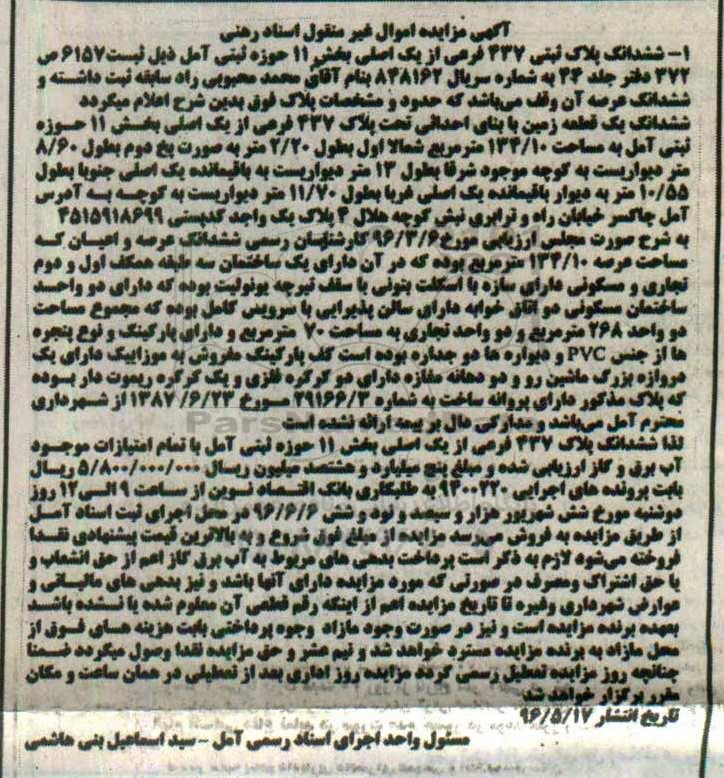 آگهی مزایده اموال غیر منقول اسناد رهنی
۱- ششدانگ پلاک ثبتی ۴۳۷ فرعی از یک اصلی بخش ۱۱ حوزه ثبتی آمل ذیل ثبت ۶۱۵۷ ص
۳۷۲ دفتر جلد ۴۴ به شماره سریال ۸۴۸۱۶۲ بنام آقای محمد محبوبی راد سابقه ثبت داشته و
ششدانگ عرصه آن وقف می‌باشد که حدود و مشخصات پلاک فوق بدین شرح اعلام میگردد
ششدانگ یک قطعه زمین با بنای احداثی تحت پلاک ۴۳۷ فرعی از یک اصلی بخش ۱۱ حوزه
ثبتی آمل به مساحت ۱۳۴/۱۰ مترمربع شمالا اول بطول ۲/۲۰ متر به صورت پخ دوم بطول ۸/۶۰
متر دیواریست به کوچه موجود شرقا بطول ۱۳ متر دیواریست به باقیمانده یک اصلی جنوبا بطول
۱۰/۵۵ متر به دیوار باقیمانده یک اصلی غربا بطول ۱۱/۷۰ متر دیواریست به کوچه به آدرس
آمل چاکسر خیابان راه و ترابری نبش کوچه هلال ۴ پلاک یک واحد کدپستی ۴۵۱۵۹۱۸۶۹۹
به شرح صورت مجلس ارزیابی مورخ ۹۶/۳/۶ کارشناسان رسمی ششدانگ عرصه و اعیان که
مساحت عرصه ۱۳۴/۱۰ مترمربع بوده که در آن دارای یک ساختمان سه طبقه همکف اول و دوم
تجاری و مسکونی دارای سازه با اسکلت بتونی با سقف تیرچه یونولیت بوده که دارای دو واحد
ساختمان مسکونی دو اتاق خوابه دارای سالن پذیرایی با سرویس کامل بوده که مجموع مساحت
دو واحد ۲۶۸ مترمربع و دو واحد تجاری به مساحت ۷۰ مترمربع و دارای پارکینگ و نوع پنجره
ها از جنس PVC و دیواره ها دو جداره بوده است کف پارکینگ مفروش به موزاییک دارای یک
دروازه بزرگ ماشین رو و دو دهانه مغازه دارای دو کرکره فلزی و یک کرکره ریموت دار بوده
که پلاک مذکور دارای پروانه ساخت به شماره ۲۹۱۶۶/۳ مورخ ۱۳۸۷/۶/۲۳ از شهرداری
محترم آمل می‌باشد و مدارکی دال بر بیمه ارائه نشده است
لذا ششدانگ پلاک ۴۳۷ فرعی از یک اصلی بخش ۱۱ حوزه ثبتی آمل با تمام امتیازات موجود
آب برق و گاز ارزیابی شده و مبلغ پنج میلیارد و هشتصد میلیون ریسال ۵/۸۰۰/۰۰۰/۰۰۰ ریال
بابت پرونده های اجرایی ۹۴۰۰۲۲۰ به طلبکاری بانک اقتصاد نوین از ساعت ۹ الی ۱۲ روز
دوشنبه مورخ شش شهریور هزار و سیصد و نود و شش ۹۶/۶/۶ در محل اجرای ثبت اسناد آمل
از طریق مزایده به فروش می‌رسد مزایده از مبلغ فوق شروع و به بالاترین قیمت پیشنهادی نقدا
فروخته می‌شود لازم به ذکر است پرداخت بدهی های مربوط به آب برق گاز اعم از حق انشعاب و
یا حق اشتراک ومصرف در صورتی که مورد مزایده دارای آنها باشد و نیز بدهی های مالیاتی و
عوارض شهرداری وغیره تا تاریخ مزایده اعم از اینکه رقم قطعی آن معلوم شده یا نشده باشد
بعهده برنده مزایده است و نیز در صورت وجود مازاد وجوه پرداختی بابت هزینه های فوق از
محل مازاد به برنده مزایده مسترد خواهد شد و نیم عشر و حق مزایده نقدا وصول میگردد ضمنا
چنانچه روز مزایده تعطیل رسمی گردد مزایده روز اداری بعد از تعطیلی در همان ساعت و مکان
مقرر برگزار خواهد شد
تاریخ انتشار ۹۶/۵/۱۷
مسئول واحد اجرای اسناد رسمی آمل -سید اسماعیل بنی هاشمی